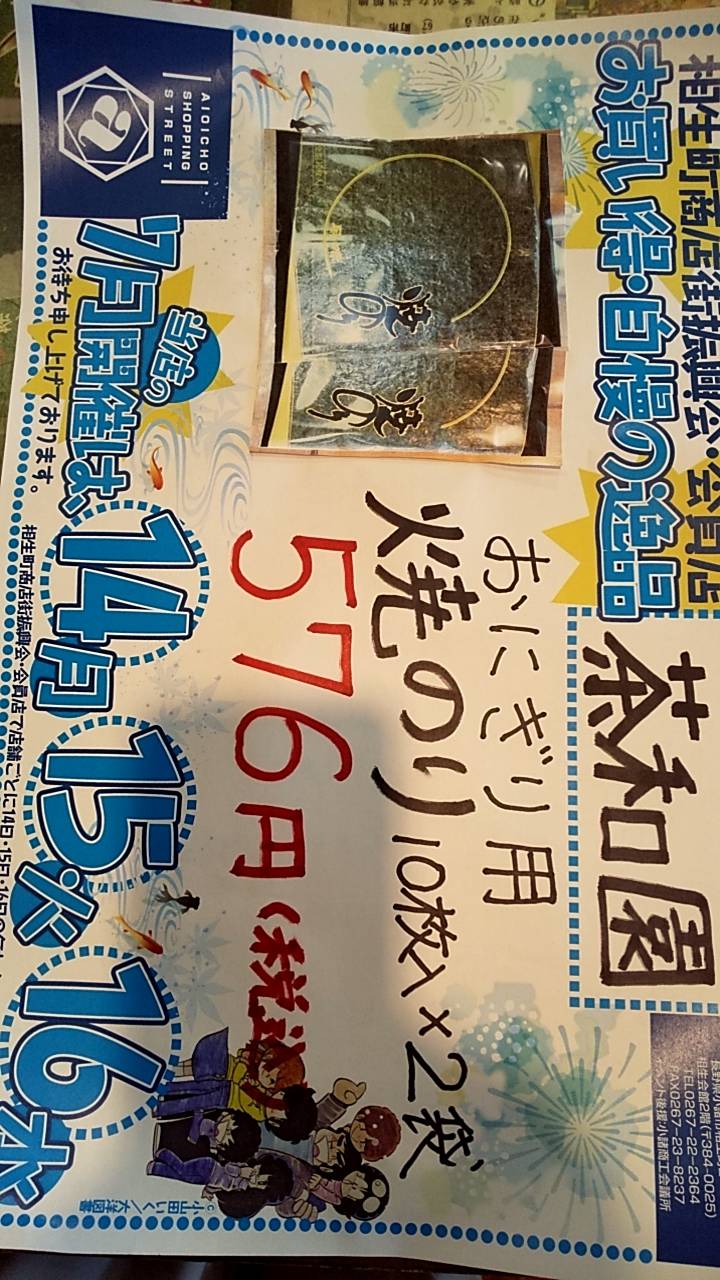 相生町商店街振興会・会員店
お買い得・自慢の逸品
茶和園
おにぎり用
焼のり10枚入×2袋
576円(税込)
焼のり
焼のり
AIOICHO
SHOPPING
STREET
a
当店の
7月開催は、
14月 15火 16水
お待ち申し上げております。
相生町商店街振興会・会員店で店舗ごとに14日・15日・16日の
相生会館2階(〒384-0025)
TEL0267-22-2364
FAX0267-23-8237
イベント後援:小諸商工会議所
©小山田いく/大洋図書